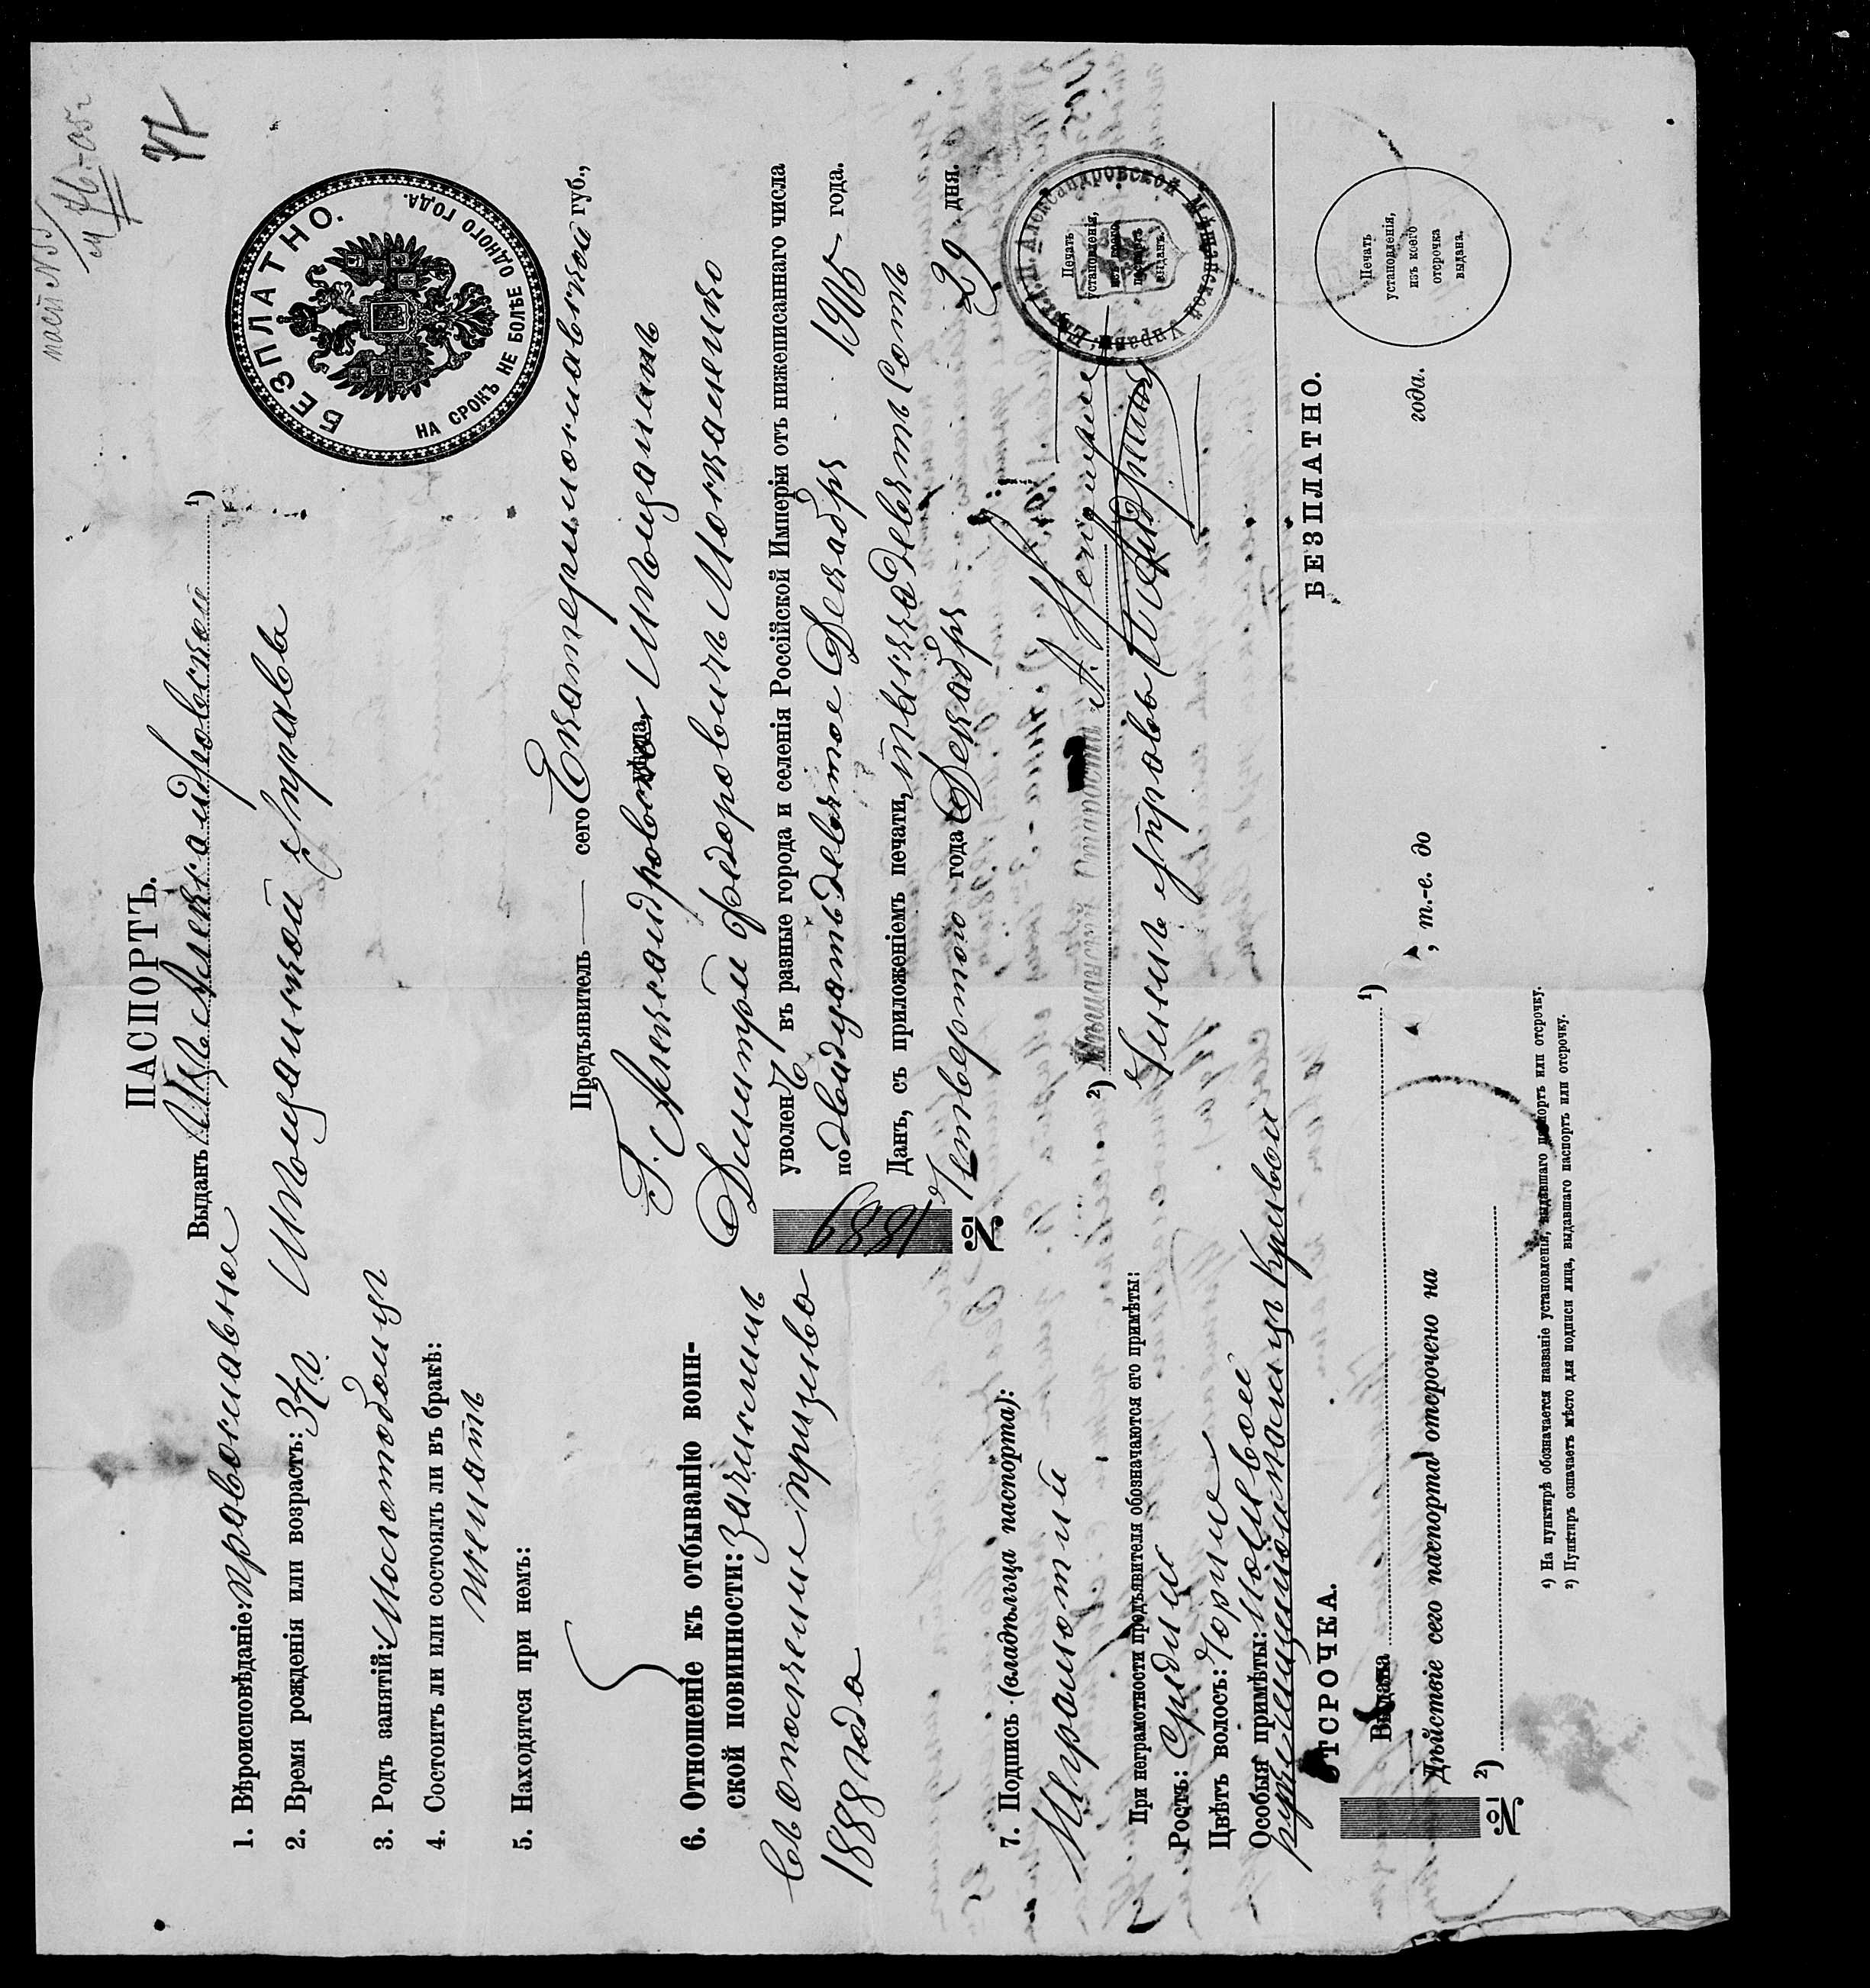 паспѣ №
76-05г
77
ПАСПОРТЪ.
БЕЗПЛАТНО.
НА СРОКЪ НЕ БОЛѢЕ ОДНОГО ГОДА.
Выданъ Изъ Александровской 1)
Мѣщанской Управы
1. Вѣроисповѣданіе: православное
2. Время рожденія или возрастъ: 37 г.
3. Родъ занятій:
4. Состоитъ ли или состоялъ ли въ бракѣ:
женатъ
5. Находятся при немъ:
6. Отношеніе къ отбыванію воин-
ской повинности: Зачисленъ
въ ополченіе призыва
1888 года
7. Подпись (владѣльца паспорта):
Неграмотный
При неграмотности предъявителя обозначаются его примѣты:
Ростъ: Средній
Цвѣтъ волосъ: Черные
Особыя примѣты: На лѣвой
рукѣ кривой
Предъявитель сего Екатеринославской губ.,
Г. Александровска Мѣщанинъ
Димитрій Федоровичъ Москаленко
уволенъ въ разные города и селенія Россійской Имперіи отъ нижеписаннаго числа
по двадцать девятое Декабря 1905 года.
Данъ, съ приложеніемъ печати, тысяча девятьсотъ
Четвертаго года Декабря 29 дня.
№ 1889
2) Мѣщанскій Староста А.
Членъ Управы
Печать
установленія,
изъ коего
паспортъ
выданъ.
Александровской Мѣщанской Управы
ОТСРОЧКА. БЕЗПЛАТНО.
Выдана 1)
Дѣйствіе сего паспорта отсрочено на , т.-е. до года.
2)
№
Печать
установленія,
изъ коего
отсрочка
выдана.
1) На пунктирѣ обозначается названіе установленія, выдавшаго паспортъ или отсрочку.
2) Пунктиръ означаетъ мѣсто для подписи лица, выдавшаго паспортъ или отсрочку.